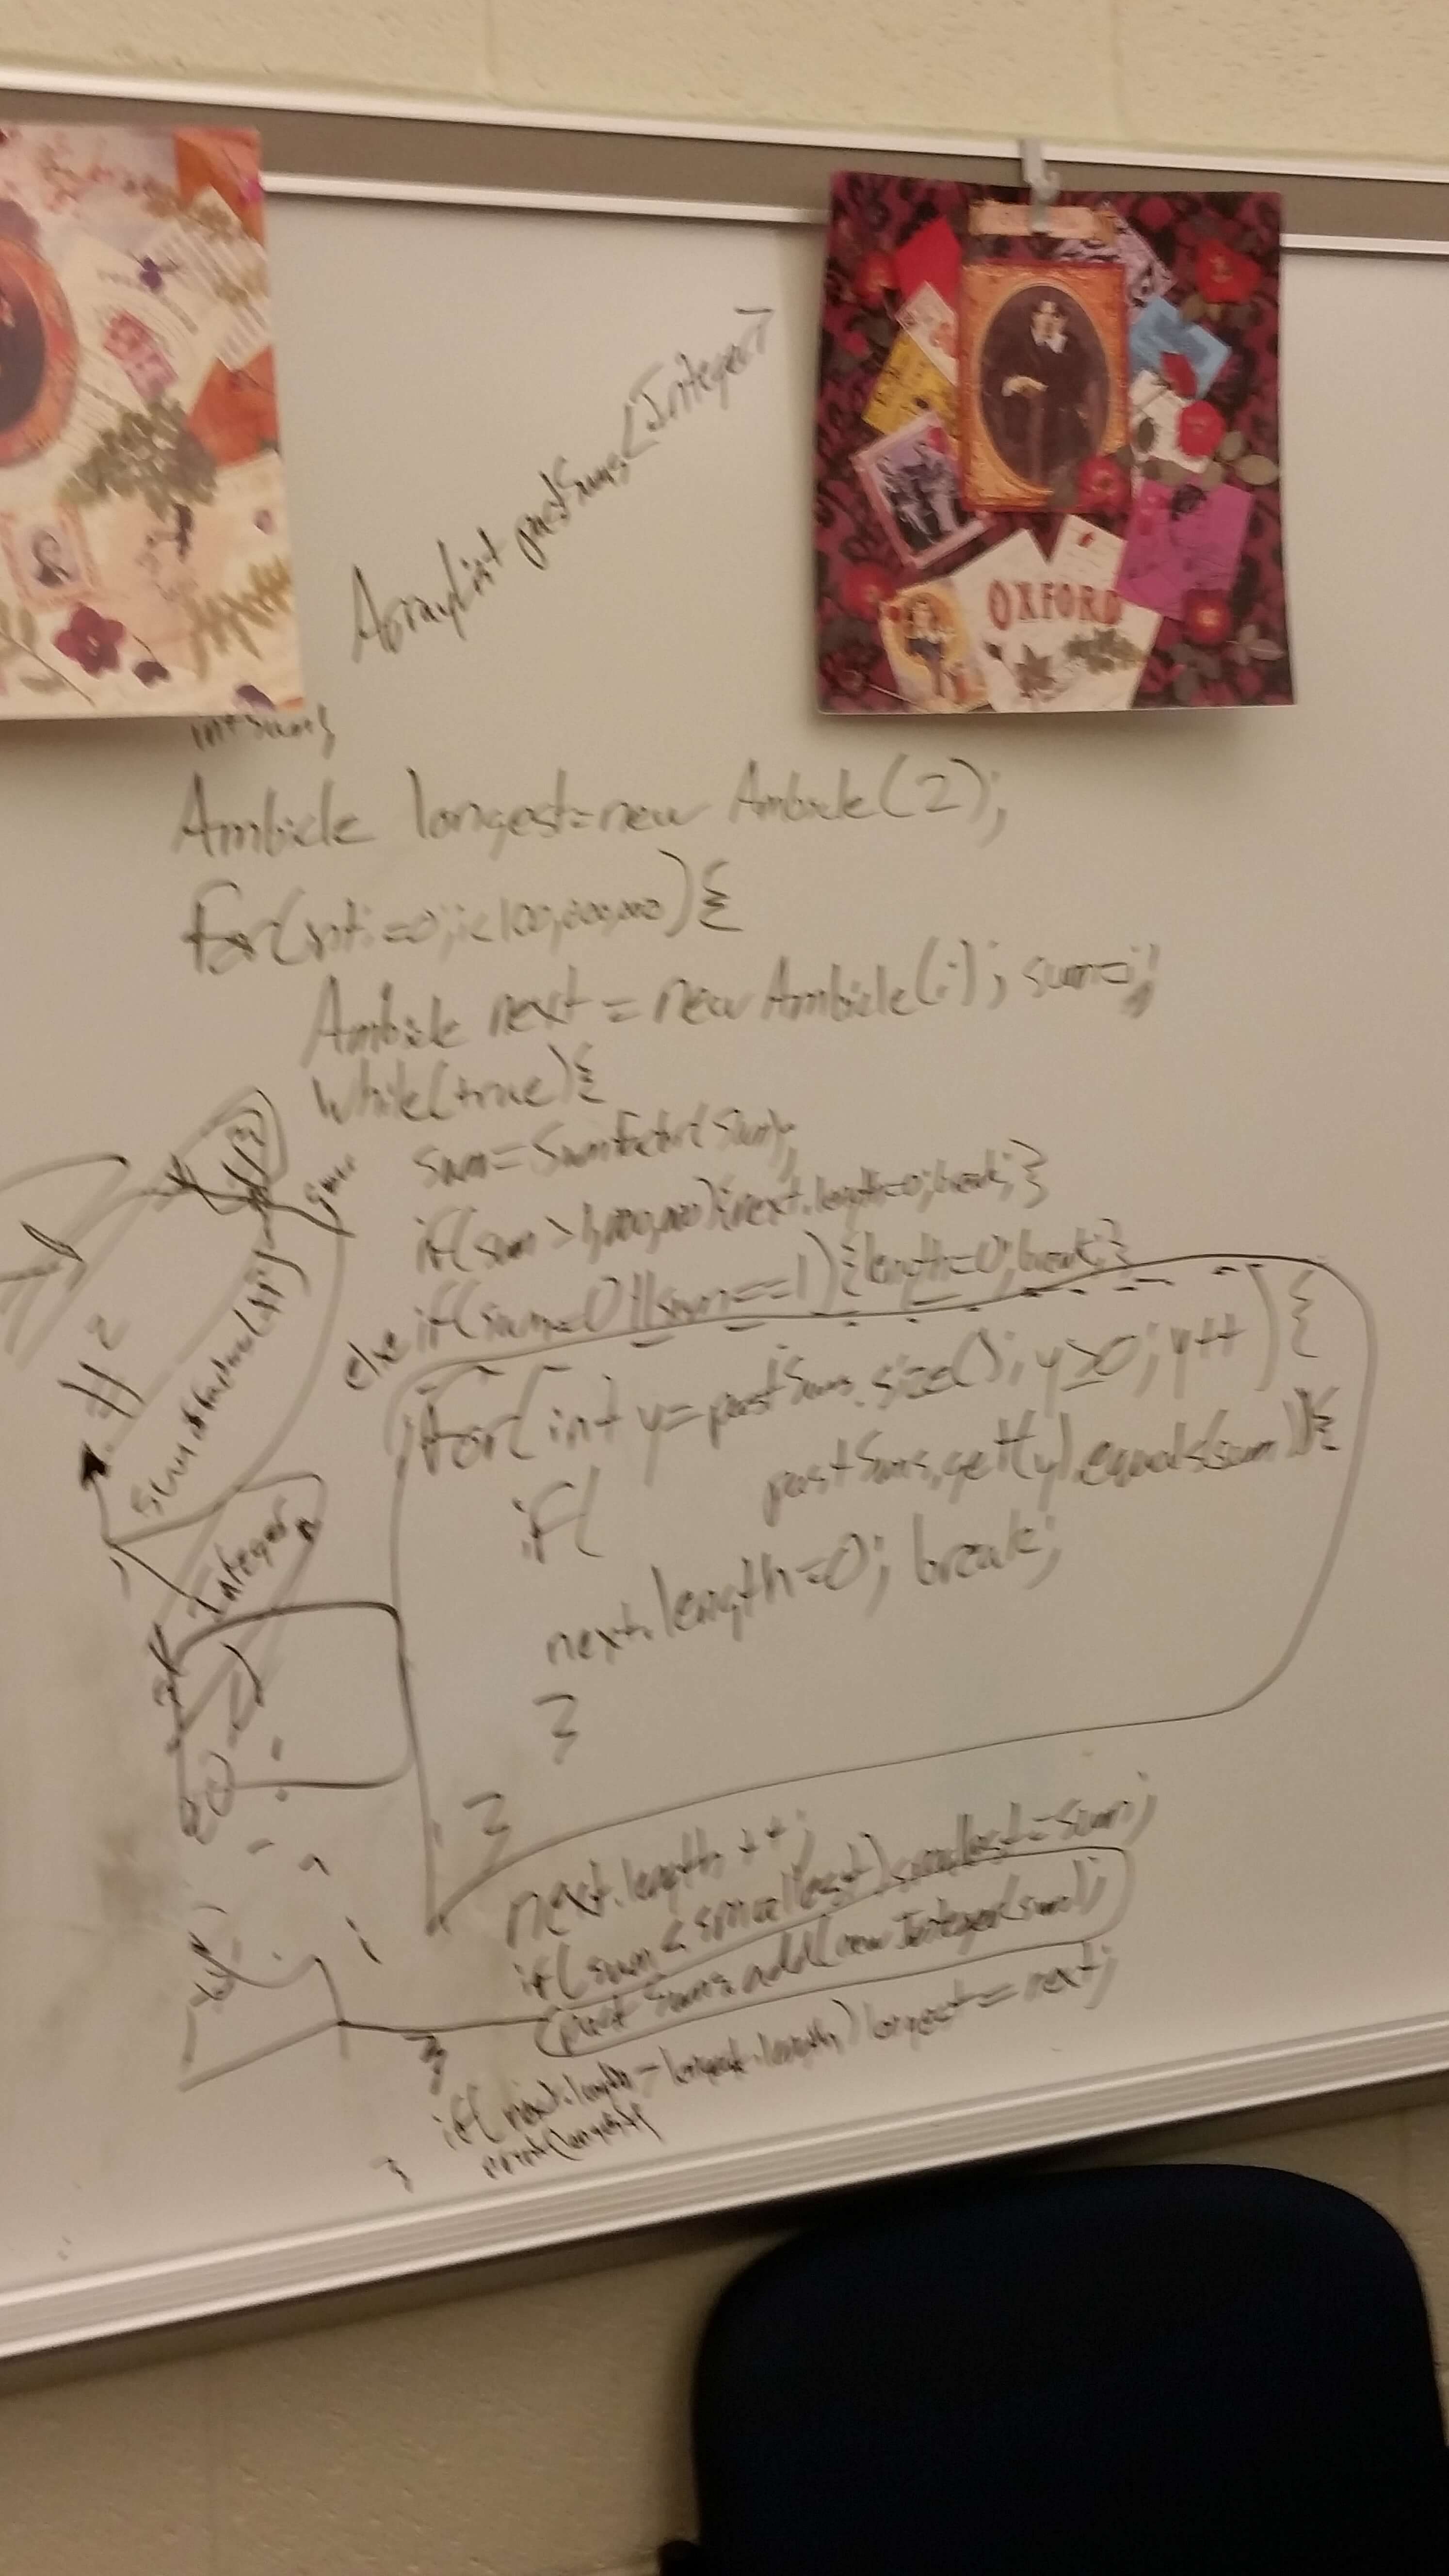 ArrayList pastSums<Integer>
OXFORD
int sum;
Ambicle longest=new Ambicle(2);
for(int i=0;i<100,000,000){
Ambicle next = new Ambicle(i); sum=i;
while(true){
sum=SumFactor(sum);
if(sum>1,000,000){next.length=0;break;}
else if(sum=0||sum==1){length=0;break;}
for(int y=pastSums.size();y≥0;y++){
if( pastSums.get(y).equals(sum)){
next.length=0; break;
}
}
next.length++;
if(sum<smallest)smallest=sum;
past Sums.add(new Integer(sum));
}
if(next.length-longest.length)longest=next;
}
Integer